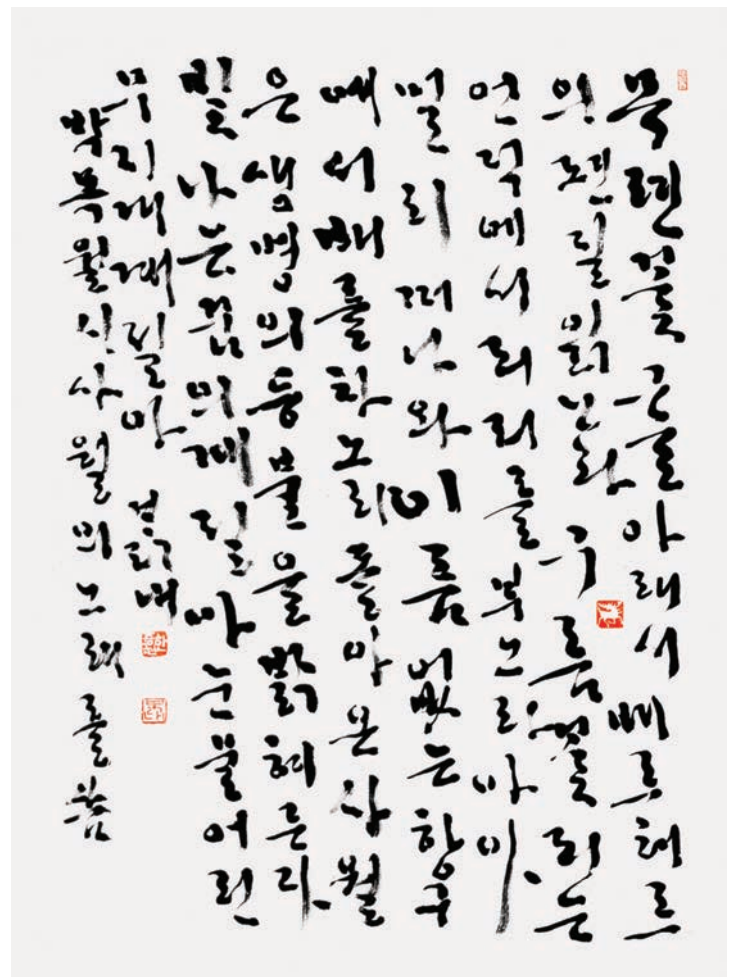 목련꽃 그늘 아래서 베르테르
의 편질 읽노라 구름꽃 피는
언덕에서 피리를 부노라 아아
멀리 떠나와 이름 없는 항구
에서 배를 타노라 돌아온 사월
은 생명의 등불을 밝혀 든다
빛나는 꿈의 계절아 눈물 어린
무지개 계절아
박목월 시 사월의 노래를 씀